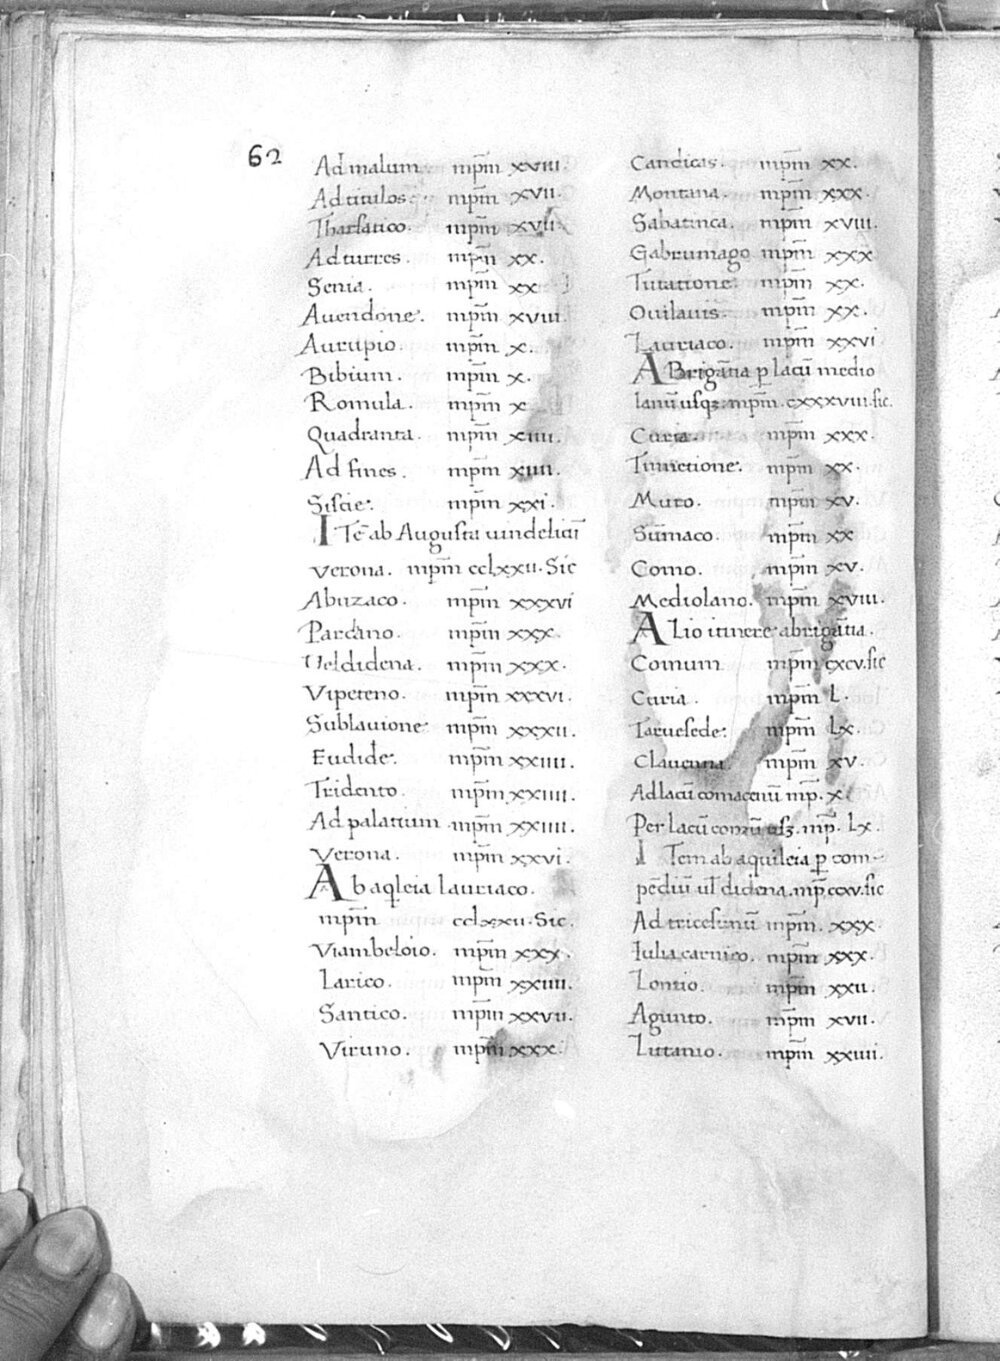 62
Ad malum mpm̄ xviii.
Ad titulos. mpm̄ xvii.
Tharsatico. mpm̄ xvii
Ad turres. mpm̄ xx.
Senia. mpm̄ xx
Auendone. mpm̄ xviii.
Aurupio. mpm̄ x.
Bibium. mpm̄ x.
Romula. mpm̄ x
Quadranta. mpm̄ xiiii.
Ad fines. mpm̄ xiiii.
Siscie. mpm̄ xxi.
ITē ab Augusta uindeliciī
verona. mpm̄ cclxxii. Sic
Abuzaco. mpm̄ xxxvi
Pardano. mpm̄ xxx.
Ueldidena. mpm̄ xxx.
Vipeteno. mpm̄ xxxvi.
Sublauione mpm̄ xxxii.
Eudide. mpm̄ xxiiii.
Tridento. mpm̄ xxiiii.
Ad palatium mpm̄ xxiiii.
Verona. mpm̄ xxvi.
Ab aqleia lauriaco.
mpm̄ cclxxii. Sic.
Viambeloio. mpm̄ xxx.
Larico. mpm̄ xxiiii.
Santico. mpm̄ xxvii.
Viruno. mpm̄ xxx.
Candicas. mpm̄ xx.
Montana. mpm̄ xxx.
Sabatinca. mpm̄ xviii.
Gabrumago mpm̄ xxx
Tutatione mpm̄ xx.
Ouilauis. mpm̄ xx.
Lauriaco. mpm̄ xxvi
A Brigāntia p lacū medio
lanū usqꝫ. mpm̄. cxxxviii. sic.
Curia. mpm̄ xxx.
Tinnetione. mpm̄ xx.
Muro. mpm̄ xv.
Sūmaco. mpm̄ xx
Como. mpm̄ xv.
Mediolano. mpm̄ xviii.
Alio itinere abrigātia.
Comum mpm̄ cxcv. sic
Curia. mpm̄ L.
Taruesede. mpm̄ Lx.
Clauenna. mpm̄ xv.
Ad lacū comacenū mp̄. x
Per lacū comū usꝫ. mp̄. Lx.
ITem ab aquileia p com-
pēdiū ul didena. mp̄ ccxv. sic
Ad tricesimū mpm̄. xxx
Iulia carnico. mpm̄ xxx.
Lontio. mpm̄ xxii.
Agunto. mpm̄ xvii.
Littamo. mpm̄ xxiiii.